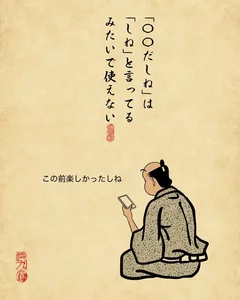 「〇〇だしね」は
「しね」と言ってる
みたいで使えない
この前楽しかったしね